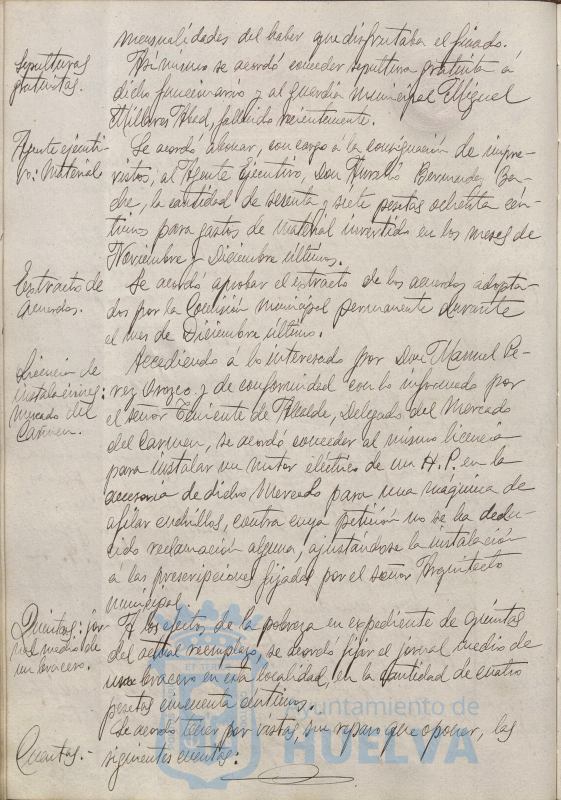 mensualidades del haber que disfrutaba el finado.
Sepulturas
gratuitas.
Así mismo se acordó conceder sepultura gratuita á
dicho funcionario y al guardia municipal Miguel
Millares Abad, fallecido recientemente.
Agente ejecuti-
vo: Material
Se acordó abonar, con cargo á la consignación de impre-
vistos, al Agente Ejecutivo, Don Aurelio Bermudez
la cantidad de sesenta y siete pesetas ochenta cén-
timos para gastos de material invertido en los meses de
Noviembre y Diciembre últimos.
Extracto de
acuerdos.
Se acordó aprobar el extracto de los acuerdos adopta-
dos por la Comisión municipal permanente durante
el mes de Diciembre último.
Licencia de
instalaciones:
Mercado del
Carmen.
Accediendo á lo interesado por Don Manuel Pe-
rez Orozco y de conformidad con lo informado por
el señor Teniente de Alcalde, Delegado del Mercado
del Carmen, se acordó conceder al mismo licencia
para instalar un motor eléctrico de un H.P. en la
accesoria de dicho Mercado para una maquina de
afilar cuchillos, contra cuya petición no se ha dedu-
cido reclamación alguna, ajustándose la instalación
á las prescripciones fijadas por el señor Arquitecto
municipal.
Quintas: jor-
nal medio de
un bracero.
A los efectos de la pobreza en expediente de quintas
del actual reemplazo, se acordó fijar el jornal medio de
un bracero en esta localidad, en la cantidad de cuatro
pesetas cincuenta céntimos.
Cuentas.-
Se acordó tener por vistas, sin reparo que oponer, las
siguientes cuentas:
Ayuntamiento de
HUELVA